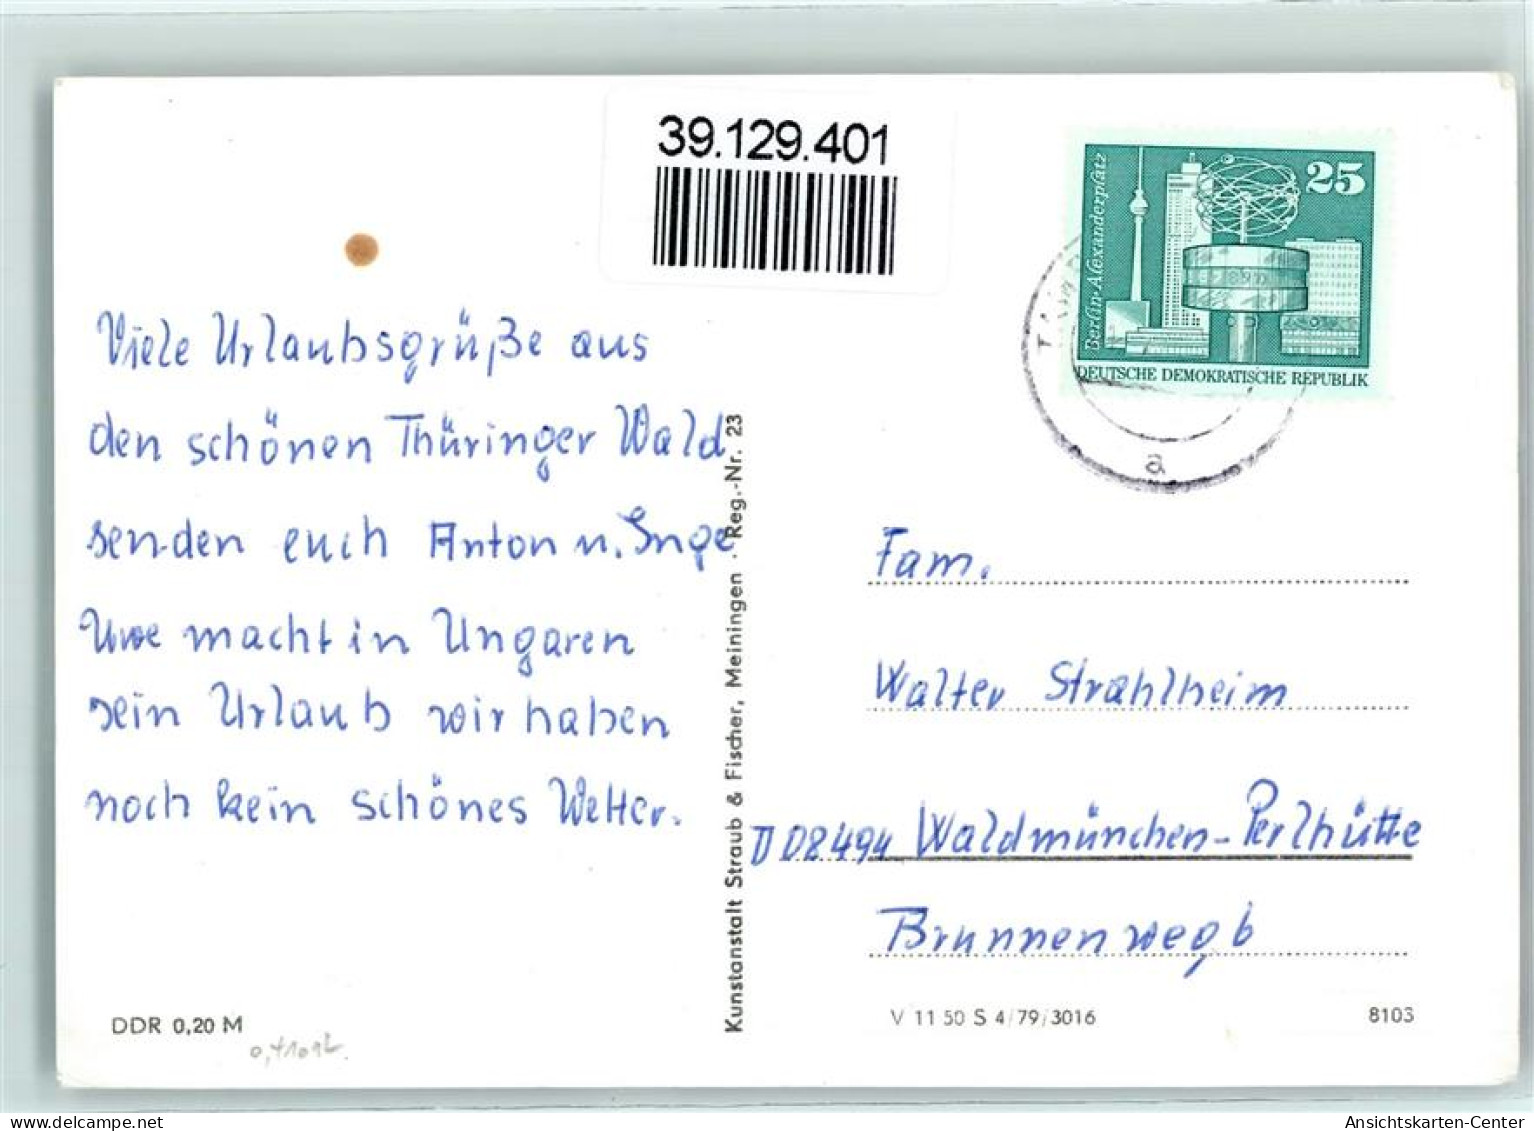 39.129.401
25
Berlin-Alexanderplatz
DEUTSCHE DEMOKRATISCHE REPUBLIK
a
Viele Urlaubsgrüße aus
den schönen Thüringer Wald
senden euch Anton u. Inge
Uwe macht in Ungaren
sein Urlaub wir haben
noch kein schönes Wetter.
DDR 0,20 M
Kunstanstalt Straub & Fischer, Meiningen · Reg.-Nr. 23
Fam.
Walter Strahlheim
D 08494 Waldmünchen-Perlhütte
Brunnenweg 6
V 11 50 S 4/79/3016
8103
Ansichtskarten-Center